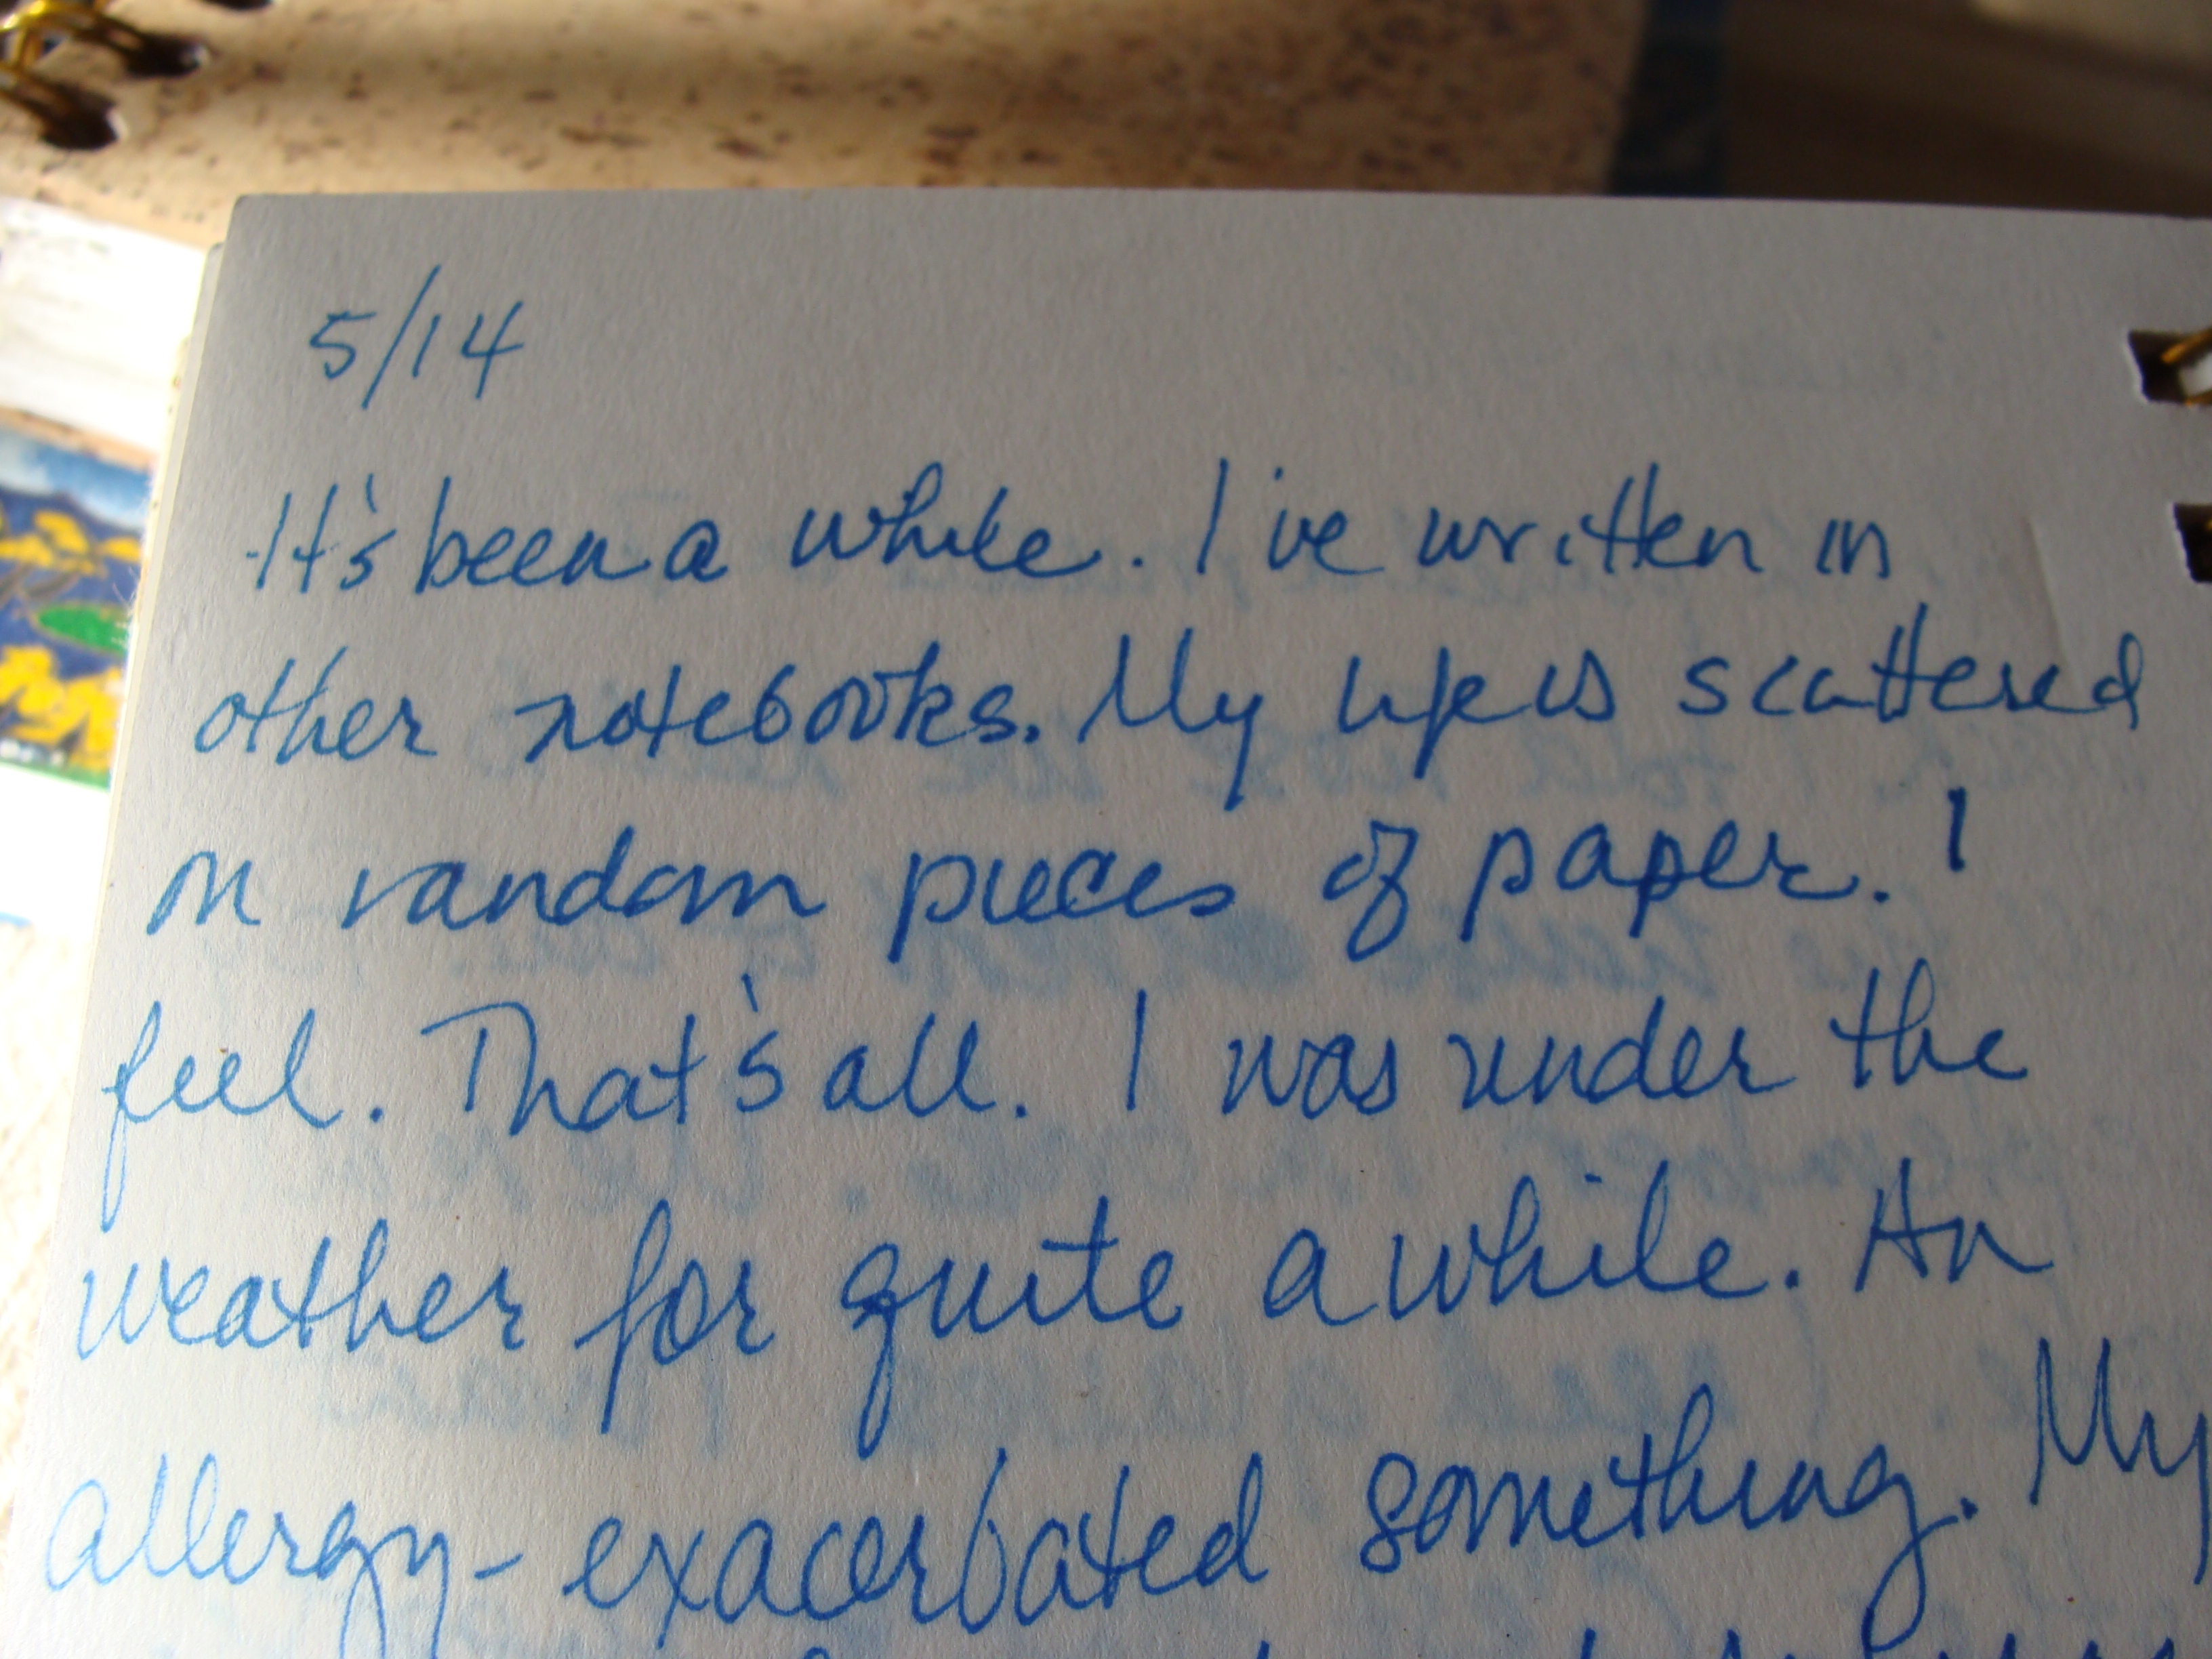 5/14
It's been a while. I've written in
other notebooks. My life is scattered
on random pieces of paper. I
feel. That's all. I was under the
weather for quite awhile. An
allergy-exacerbated something. My